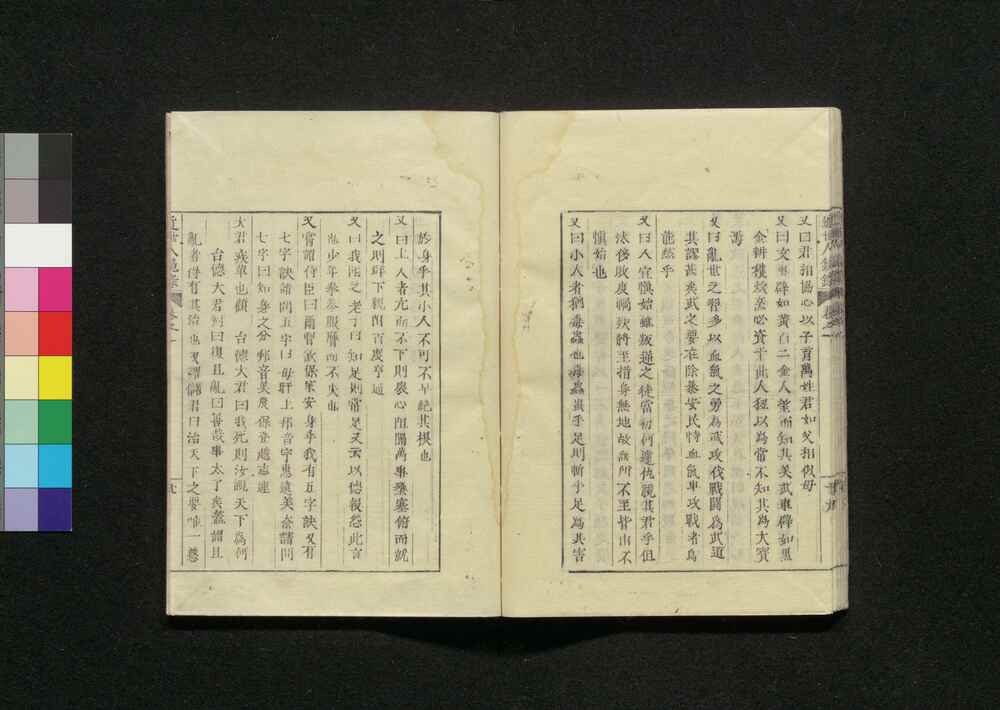 又曰君相協心以子育萬姓君如父相似母
又曰文事碑如黃白二金人望而知其美武事碑如黑
金耕穫炊烹必資于此人狃以為常不知其為大寶
焉
又曰亂世之習多以血氣之勇為武攻伐戰鬪為武道
其謬甚矣武之要在除暴安民恃血氣事攻戰者烏
能然乎
又曰人宜慎始雖叛逆之徒當初何遽仇視其君乎但
汰侈敗度禍殃將至措身無地故無所不至皆由不
慎始也
又曰小人者猶毒蟲也毒蟲螫手足則斬手足為其害
於身乎其小人不可不早絕其根也
又曰上人者亢而不下則衆心阻隔萬事壅塞俯而就
之則群下親附百度亨通
又曰我既之老子曰知足則常足又云以德報怨此言
也少年奉參服膺而不失也
又嘗謂侍臣曰爾曹欲保家安身乎我有五字訣又有
七字訣諸問五字曰毋盱上邦音宇惠遠美奈請問
七字曰知身之分邦音美廣保登遠志連
大君疾革也顧 台德大君曰我死則汝視天下為何
台德大君對曰復且亂曰善哉事太了矣蓋謂且
亂者得有其治也又謂儲君曰治天下之要唯一慈